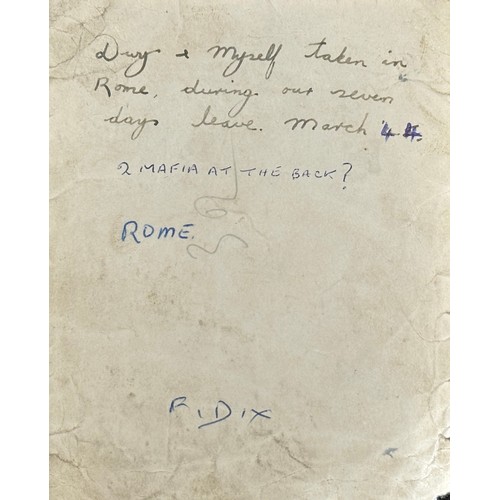 Dwy & Myself taken in
Rome, during our seven
days leave. March '44
2 MAFIA AT THE BACK?
ROME.
F. DIX